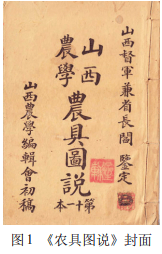 山西督軍兼省長閻 鑒定
山西
農學
農具圖說
第十一本
山西農學編輯會初稿
图1 《农具图说》封面